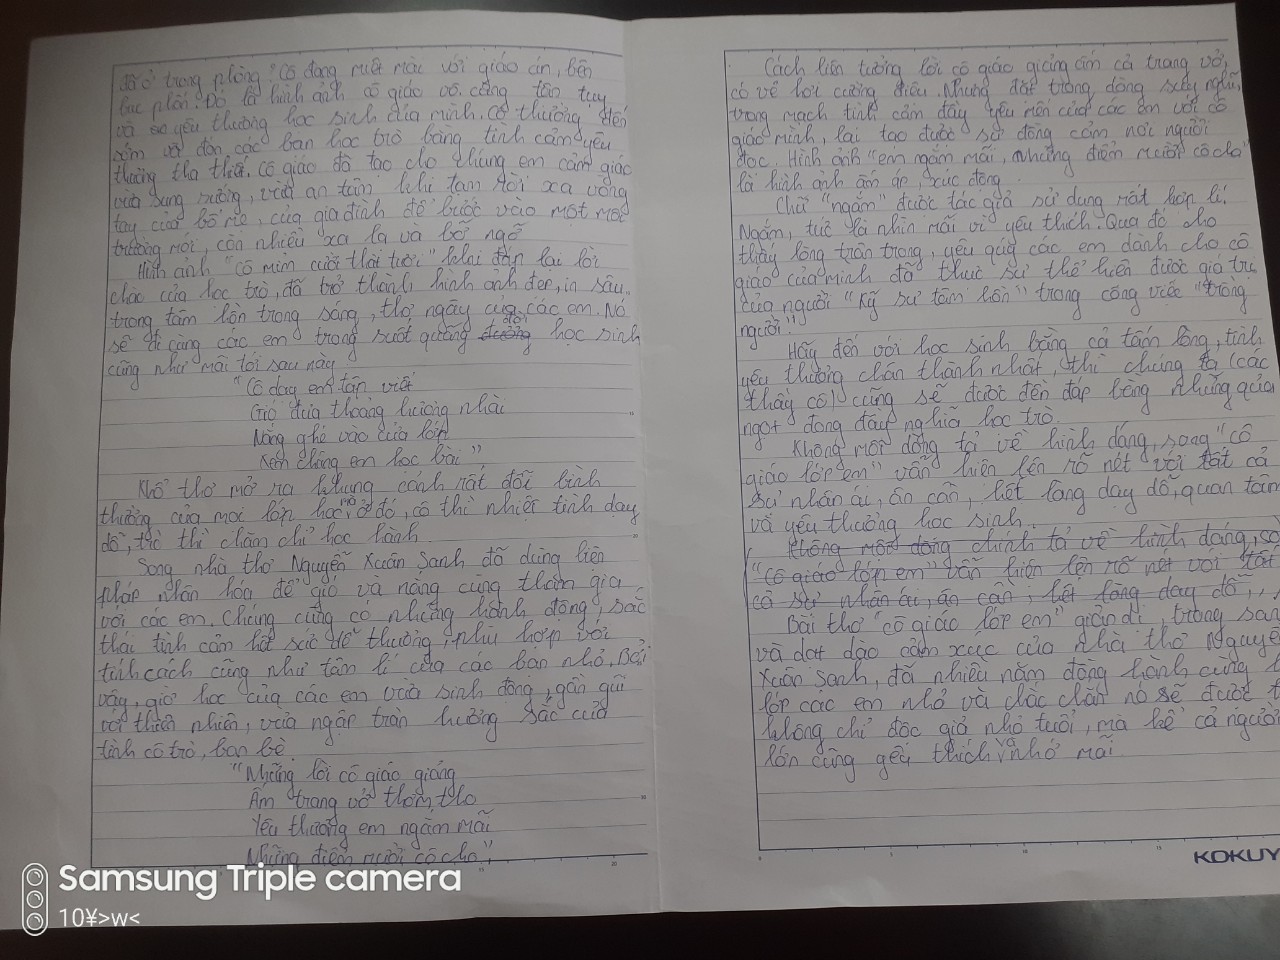 đã ở trong phòng? Cô đang miệt mài với giáo án, bên
bục phấn. Đó là hình ảnh cô giáo vô cùng tận tụy
và yêu thương học sinh của mình. Cô thường đến
sớm và đón các bạn học trò bằng tình cảm yêu
thương tha thiết. Cô giáo đã tạo cho chúng em cảm giác
vừa sung sướng, vừa an tâm khi tạm rời xa vòng
tay của bố mẹ, của gia đình để bước vào một môi
trường mới, còn nhiều xa lạ và bỡ ngỡ
Hình ảnh "cô mỉm cười thật tươi" khi đáp lại lời
chào của học trò, đã trở thành hình ảnh đẹp, in sâu
trong tâm hồn trong sáng, thơ ngây của các em. Nó
sẽ đi cùng các em trong suốt quãng đời học sinh
cũng như mãi tới sau này
"Cô dạy em tập viết
Gió đưa thoảng hương nhài
Nắng ghé vào cửa lớp
Xem chúng em học bài"
Khổ thơ mở ra khung cảnh rất đỗi bình
thường của mọi lớp học mà ở đó, cô thì nhiệt tình dạy
dỗ, trò thì chăm chỉ học hành.
Song nhà thơ Nguyễn Xuân Sanh đã dùng biện
pháp nhân hóa để gió và nắng cùng tham gia
với các em. Chúng cũng có những hành động, sắc
thái tình cảm hết sức dễ thương, phù hợp với
tính cách cũng như tâm lí của các bạn nhỏ. Bởi
vậy, giờ học của các em vừa sinh động, gần gũi
với thiên nhiên, vừa ngập tràn hương sắc của
tình cô trò, bạn bè
"Những lời cô giáo giảng
Ấm trang vở thơm tho
Yêu thương em ngắm mãi
Những điểm mười cô cho"
Cách liên tưởng lời cô giáo giảng ấm cả trang vở,
có vẻ hơi cường điệu. Nhưng đặt trong dòng suy nghĩ,
trong mạch tình cảm đầy yêu mến của các em với cô
giáo mình, lại tạo được sự đồng cảm nơi người
đọc. Hình ảnh "em ngắm mãi, những điểm mười cô cho"
là hình ảnh ấm áp, xúc động.
Chữ "ngắm" được tác giả sử dụng rất hợp lí.
Ngắm, tức là nhìn mãi vì yêu thích. Qua đó cho
thấy lòng trân trọng, yêu quý các em dành cho cô
giáo của mình đã thực sự thể hiện được giá trị
của người "kỹ sư tâm hồn" trong công việc "trồng
người".
Hãy đến với học sinh bằng cả tấm lòng, tình
yêu thương chân thành nhất, thì chúng ta (các
thầy cô) cũng sẽ được đền đáp bằng những quả
ngọt đong đầy nghĩa học trò.
Không một dòng tả về hình dáng, song "cô
giáo lớp em" vẫn hiện lên rõ nét với tất cả
sự nhân ái, ân cần, hết lòng dạy dỗ, quan tâm
và yêu thương học sinh.
Không một dòng chính tả về hình dáng, so
"Cô giáo lớp em" vẫn hiện lên rõ nét với tất
cả sự nhân ái, ân cần, hết lòng dạy dỗ,
Bài thơ "cô giáo lớp em" giản dị, trong sán
và dạt dào cảm xúc của nhà thơ Nguyễ
Xuân Sanh, đã nhiều năm đồng hành cùng
lớp các em nhỏ và chắc chắn nó sẽ được
không chỉ độc giả nhỏ tuổi, mà kể cả người
lớn cũng yêu thích và nhớ mãi
KOKUY
Samsung Triple camera
10¥>w<